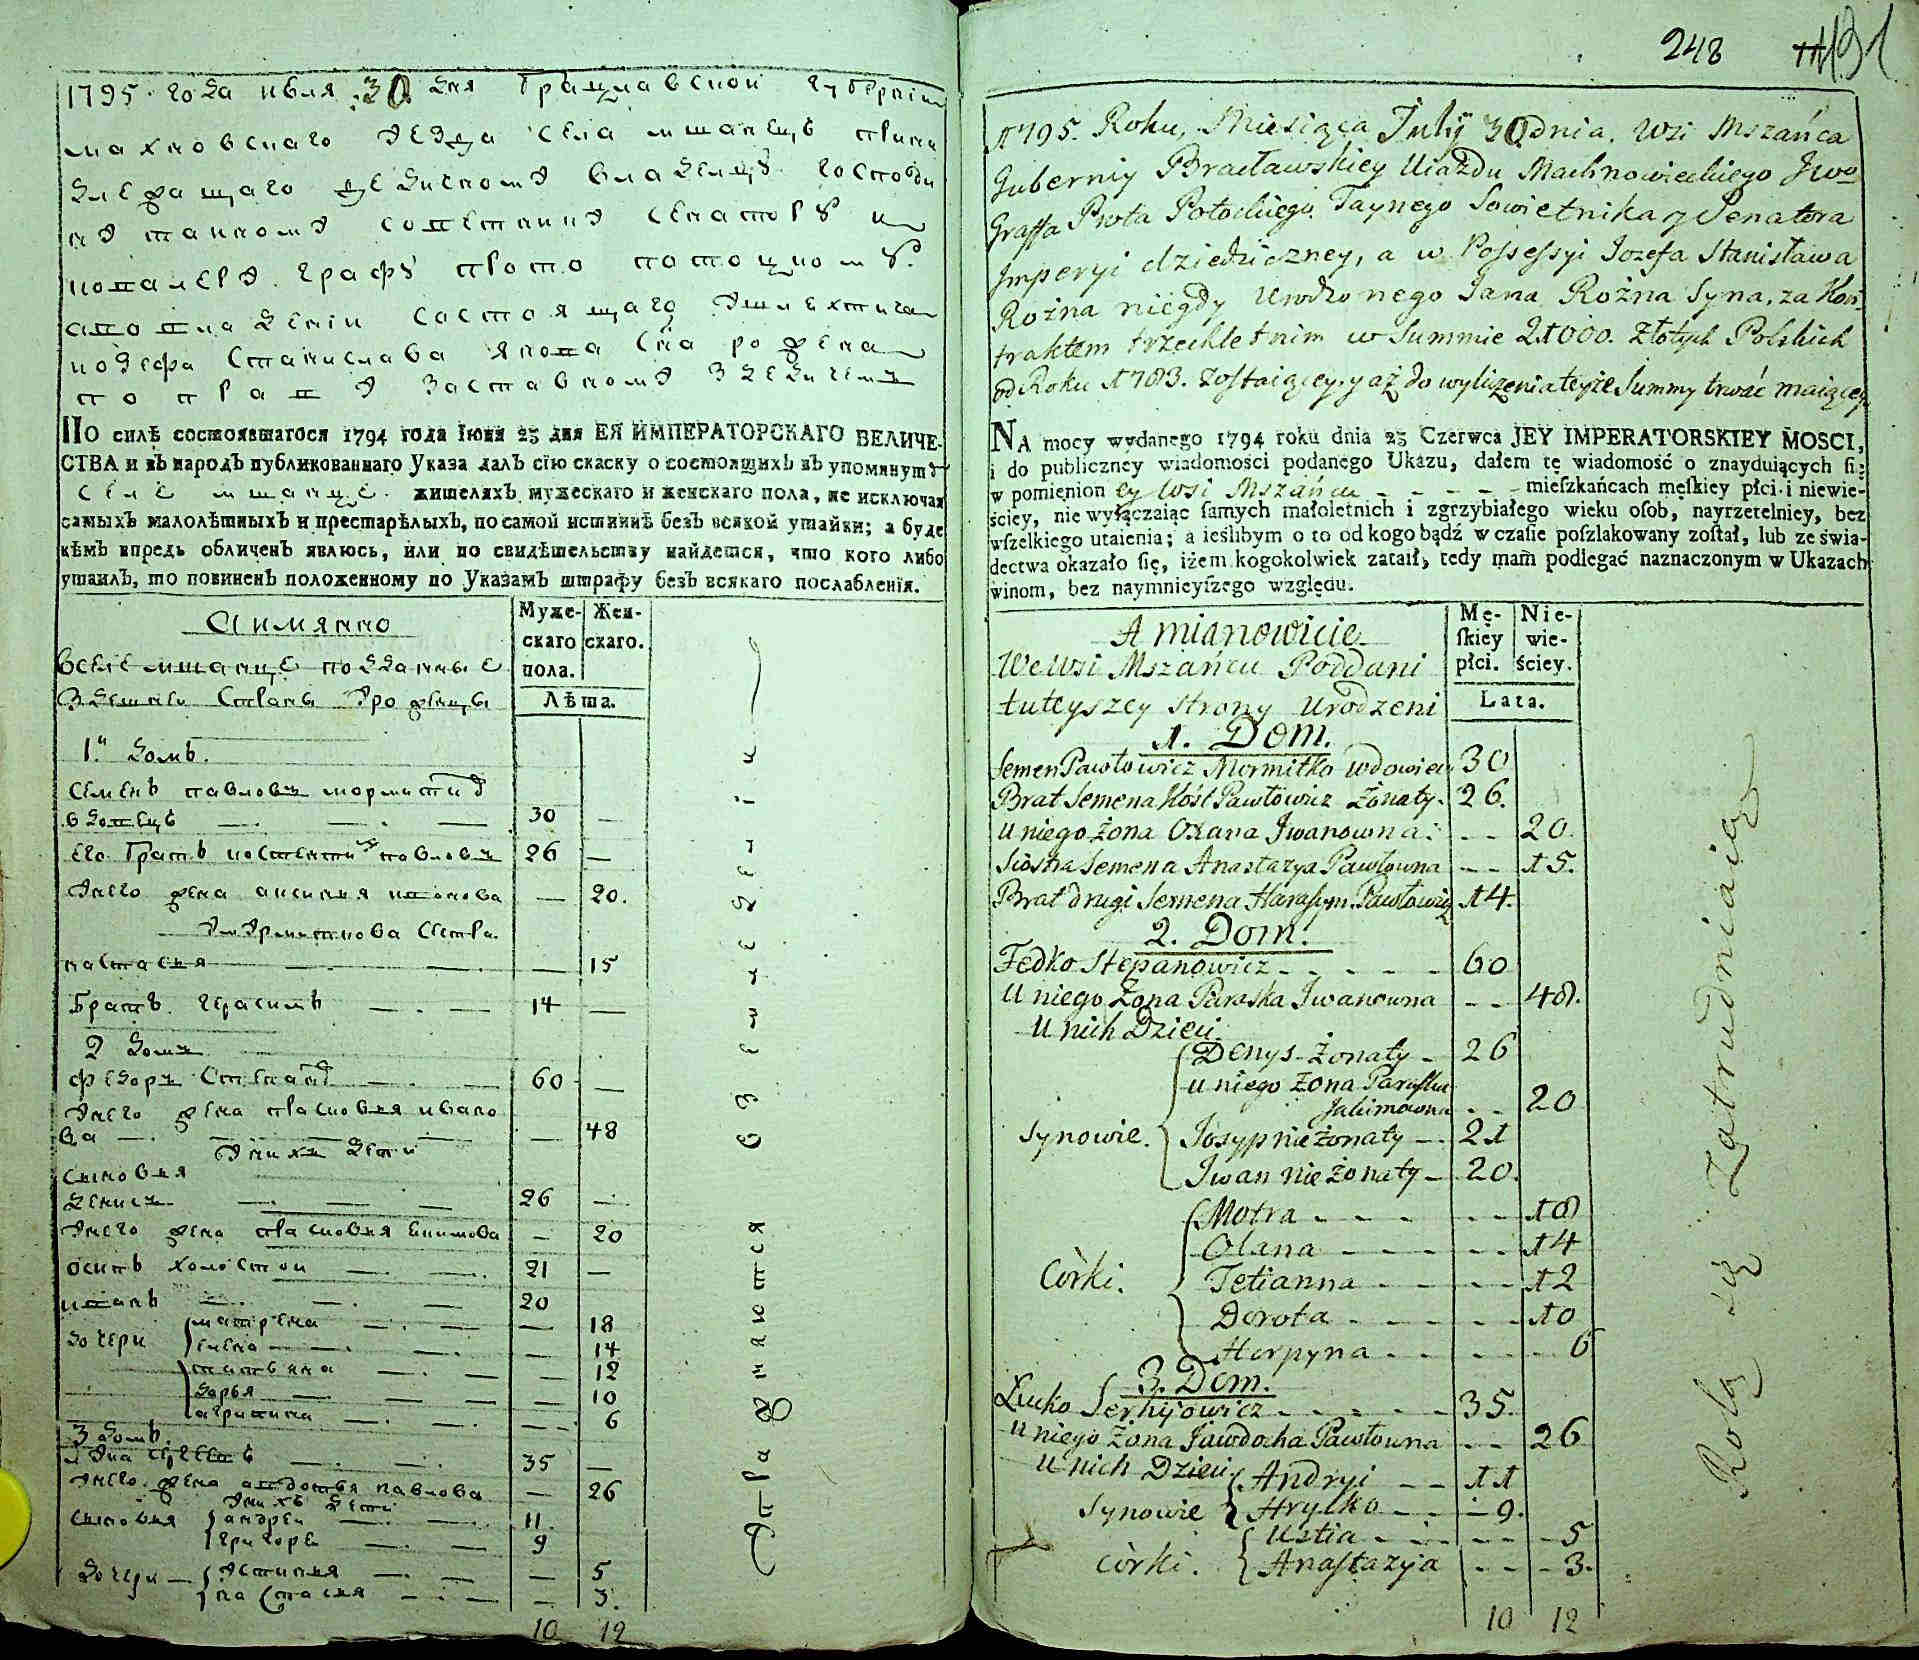 1795. года июля 30 дня Брацлавской губернии
махновскаго уезда села мшанецъ прина
длежащаго
графу
иозефа Станислава
ПО силѣ состоявшагося 1794 года Іюня 23 дня ЕЯ ИМПЕРАТОРСКАГО ВЕЛИЧЕ-
СТВА и въ народъ публикованнаго Указа далъ сію скаску о состоящихъ въ упомянутъ
селе мшанце. жителяхъ мужескаго и женскаго пола, не исключая
самыхъ малолѣтныхъ и престарѣлыхъ, по самой истиннѣ безъ всякой утайки; а буде
кѣмъ впредь обличенъ явлюсь, или по свидѣтельству найдется, что кого либо
утаилъ, то повиненъ положенному по Указамъ штрафу безъ всякаго послабленія.
Муже-
скаго
пола.
Жен-
скаго.
Лѣта.
А имянно
вселе мшанце подданные
здешней Страны урожденцы
1й домъ.
Семенъ павловъ мормитко
вдовецъ — — — 30 —
его братъ костентинъ павловъ 26 —
унего жена аксиния иванова — 20.
Сестра
настасия — — — 15
Братъ герасимъ — — 14 —
2 домъ
федоръ Степановъ — — 60 —
унего жена прасковия ивано
ва — — — — 48
унихъ дети
сыновия
денисъ — — — 26 —
унего жена прасковия екимова — 20
осипъ холостой — — 21 —
иванъ — — — 20
дочери
матрена — — — 18
елена — — — 14
татьяна — — — 12
дарья — — — 10
агрипина — — — 6
3 домъ.
лука сергеевъ — — 35 —
унего жена авдотья павлова — 26
унихъ дети
сыновия
андрей — — 11.
григорей — — 9
дочери —
устиния — — — 5
настасия — — — 3.
10 12
упражняются в земледелии
248
1795. Roku, Miesiąca July 30 dnia. Wsi Mszańca
Gubernij Bracławskiey Uiazdu Machnowieckiego Jwo
Graffa Prota Potockiego Taynego Sowietnika y Senatora
Imperyi dziedziczney, a w Possessyi Jozefa Stanisława
Rożna niegdy Urodzonego Jana Rożna Syna, za Kon-
traktem trzechletnim w Summie 21000. Złotych Polskich
od Roku 1783. zostaiącey, y aż do wyliczenia teyże Summy trwać maiącey.
NA mocy wydanego 1794 roku dnia 23 Czerwca JEY IMPERATORSKIEY MOSCI,
i do publiczney wiadomości podanego Ukazu, dałem tę wiadomość o znayduiących się
w pomienion ey Wsi Mszańcu - - - - - mieſzkańcach męſkiey płci i niewie-
ściey, nie wyłączaiąc ſamych małoletnich i zgrzybiałego wieku oſob, nayrzetelniey, bez
wſzelkiego utaienia; a ieślibym o to od kogo bądź w czaſie poſzlakowany zoſtał, lub ze świa-
dectwa okazało się, iżem kogokolwiek zataił, tedy mam podlegać naznaczonym w Ukazach
winom, bez naymnieyſzego względu.
Mę-
ſkiey
płci.
Nie-
wie-
ściey.
Lata.
A mianowicie
We Wsi Mszańcu Poddani
tuteyszey strony urodzeni
1. Dom.
Semen Pawłowicz Mormitko wdowiec 30
Brat Semena Kość Pawłowicz żonaty. 26.
u niego żona Oxana Jwanowna. - - 20.
Siostra Semena Anastazya Pawłowna - - 15.
Brat drugi Semena Harasym Pawłowicz 14.
2. Dom.
Fedko Stepanowicz - - - - - 60
U niego Żona Paraska Jwanowna - - 48.
U nich Dzieci
Synowie.
Denys żonaty - 26
u niego żona Paraska
Jakimowna - - 20
Josyp nieżonaty - 21
Jwan nieżonaty - 20.
Córki.
Motra - - - - - - 18
Olana - - - - - - 14
Tetianna - - - - - - 12
Dorota - - - - - - 10
Horpyna - - - - - - 6
3. Dom.
Łuko Serhijowicz - - - - - 35.
U niego Żona Jawdocha Pawłowna - - 26
U nich Dzieci
Synowie
Andryi - - 11
Hryćko - - - 9.
Córki.
Ustia - - - - - 5
Anastazya - - - 3.
10 12
Rolą się zatrudniaią